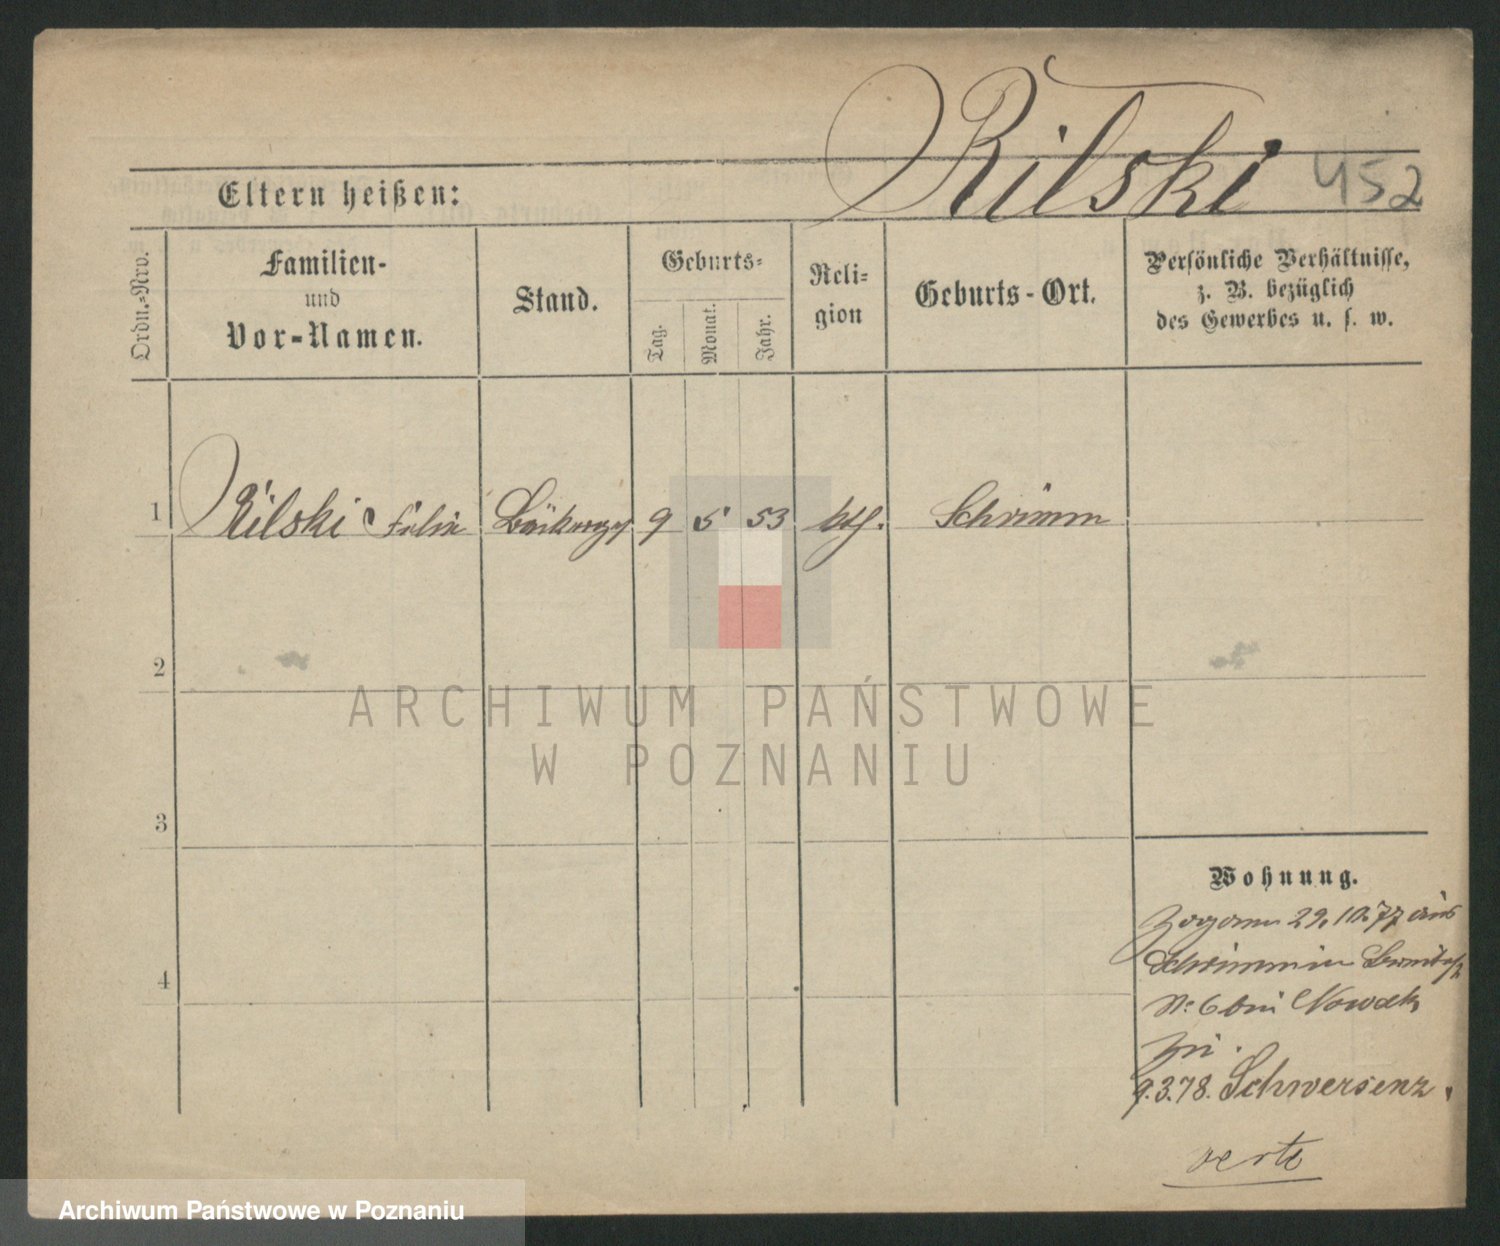 Rilski 452
Eltern heißen:
Ordn.=Nro.
Familien-
und
Vor-Namen.
Stand.
Geburts=
Tag.
Monat.
Jahr.
Reli=
gion
Geburts-Ort.
Persönliche Verhältnisse,
z. B. bezüglich
des Gewerbes u. s. w.
1 Rilski 9 5 53 kth. Schrimm
2
ARCHIWUM PAŃSTWOWE
W POZNANIU
3
Wohnung.
29.10.77 aus
Schrimm in
No 6 bei Nowak
4
9.3.78. Schwersenz.
verte
Archiwum Państwowe w Poznaniu